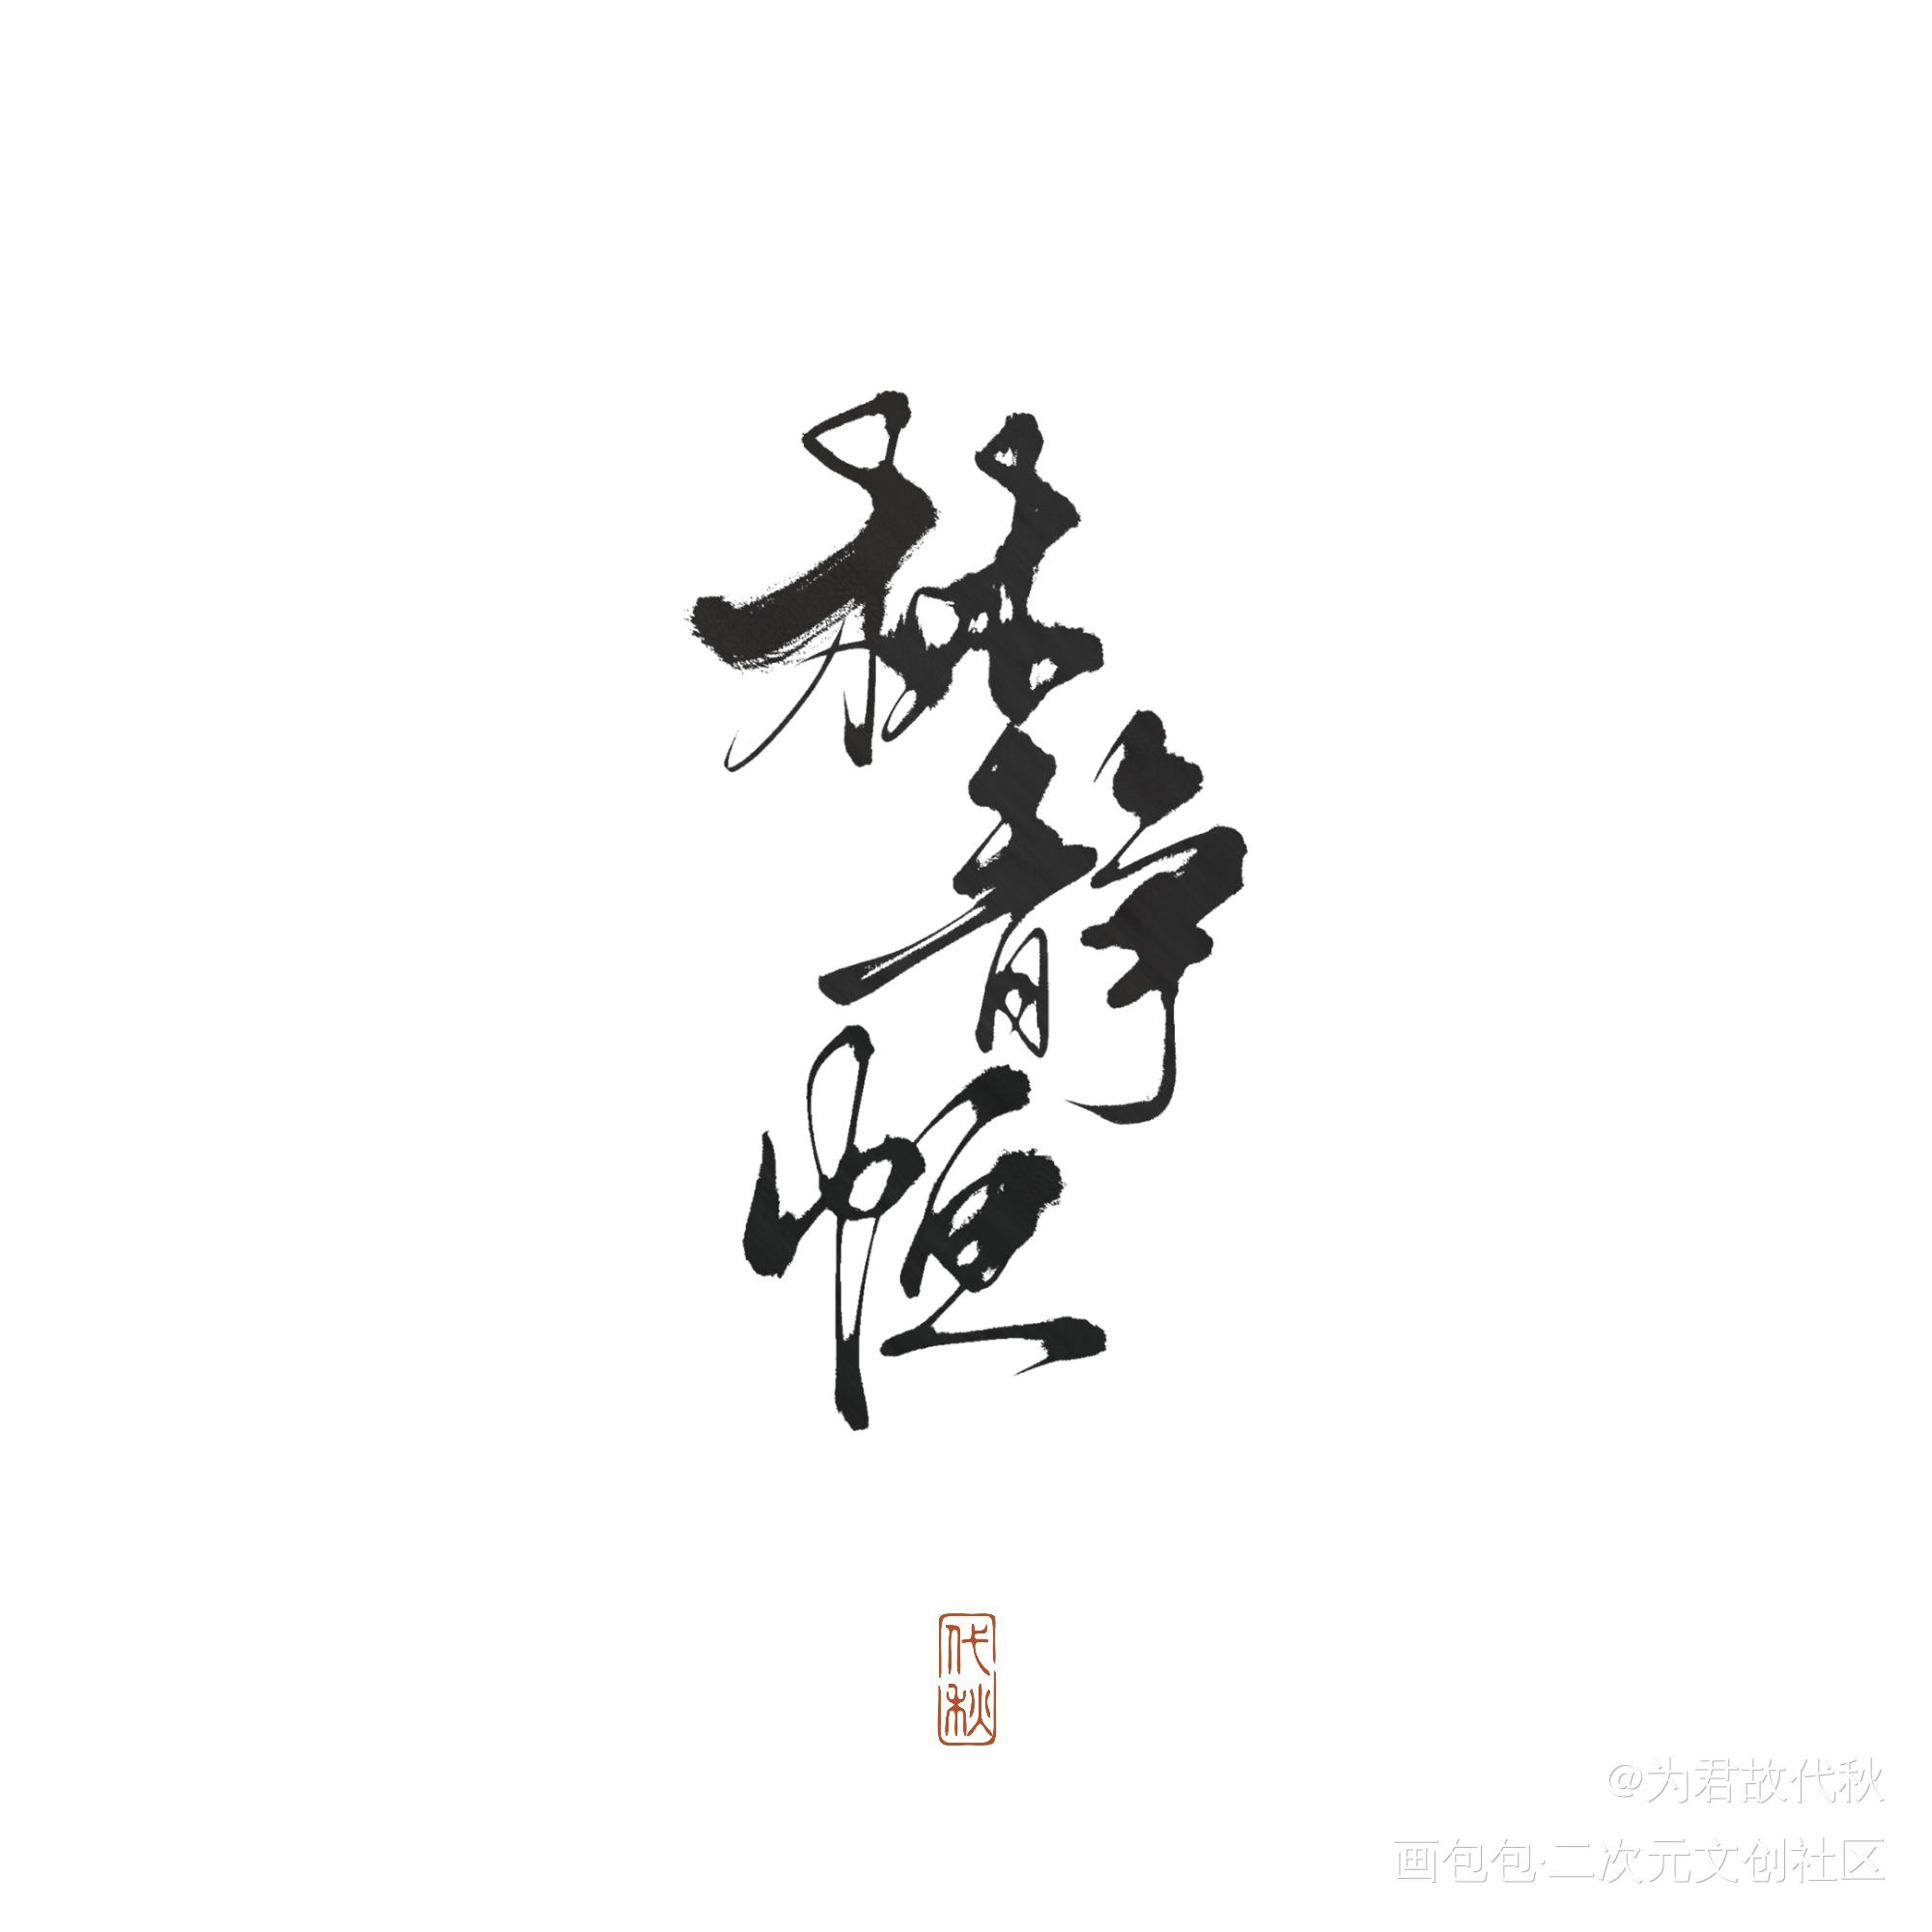 静恒
代秋
@为君故代秋
画包包·二次元文创社区